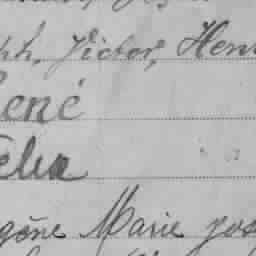 ph, Victor, Henr
René
elia
gène Marie jos